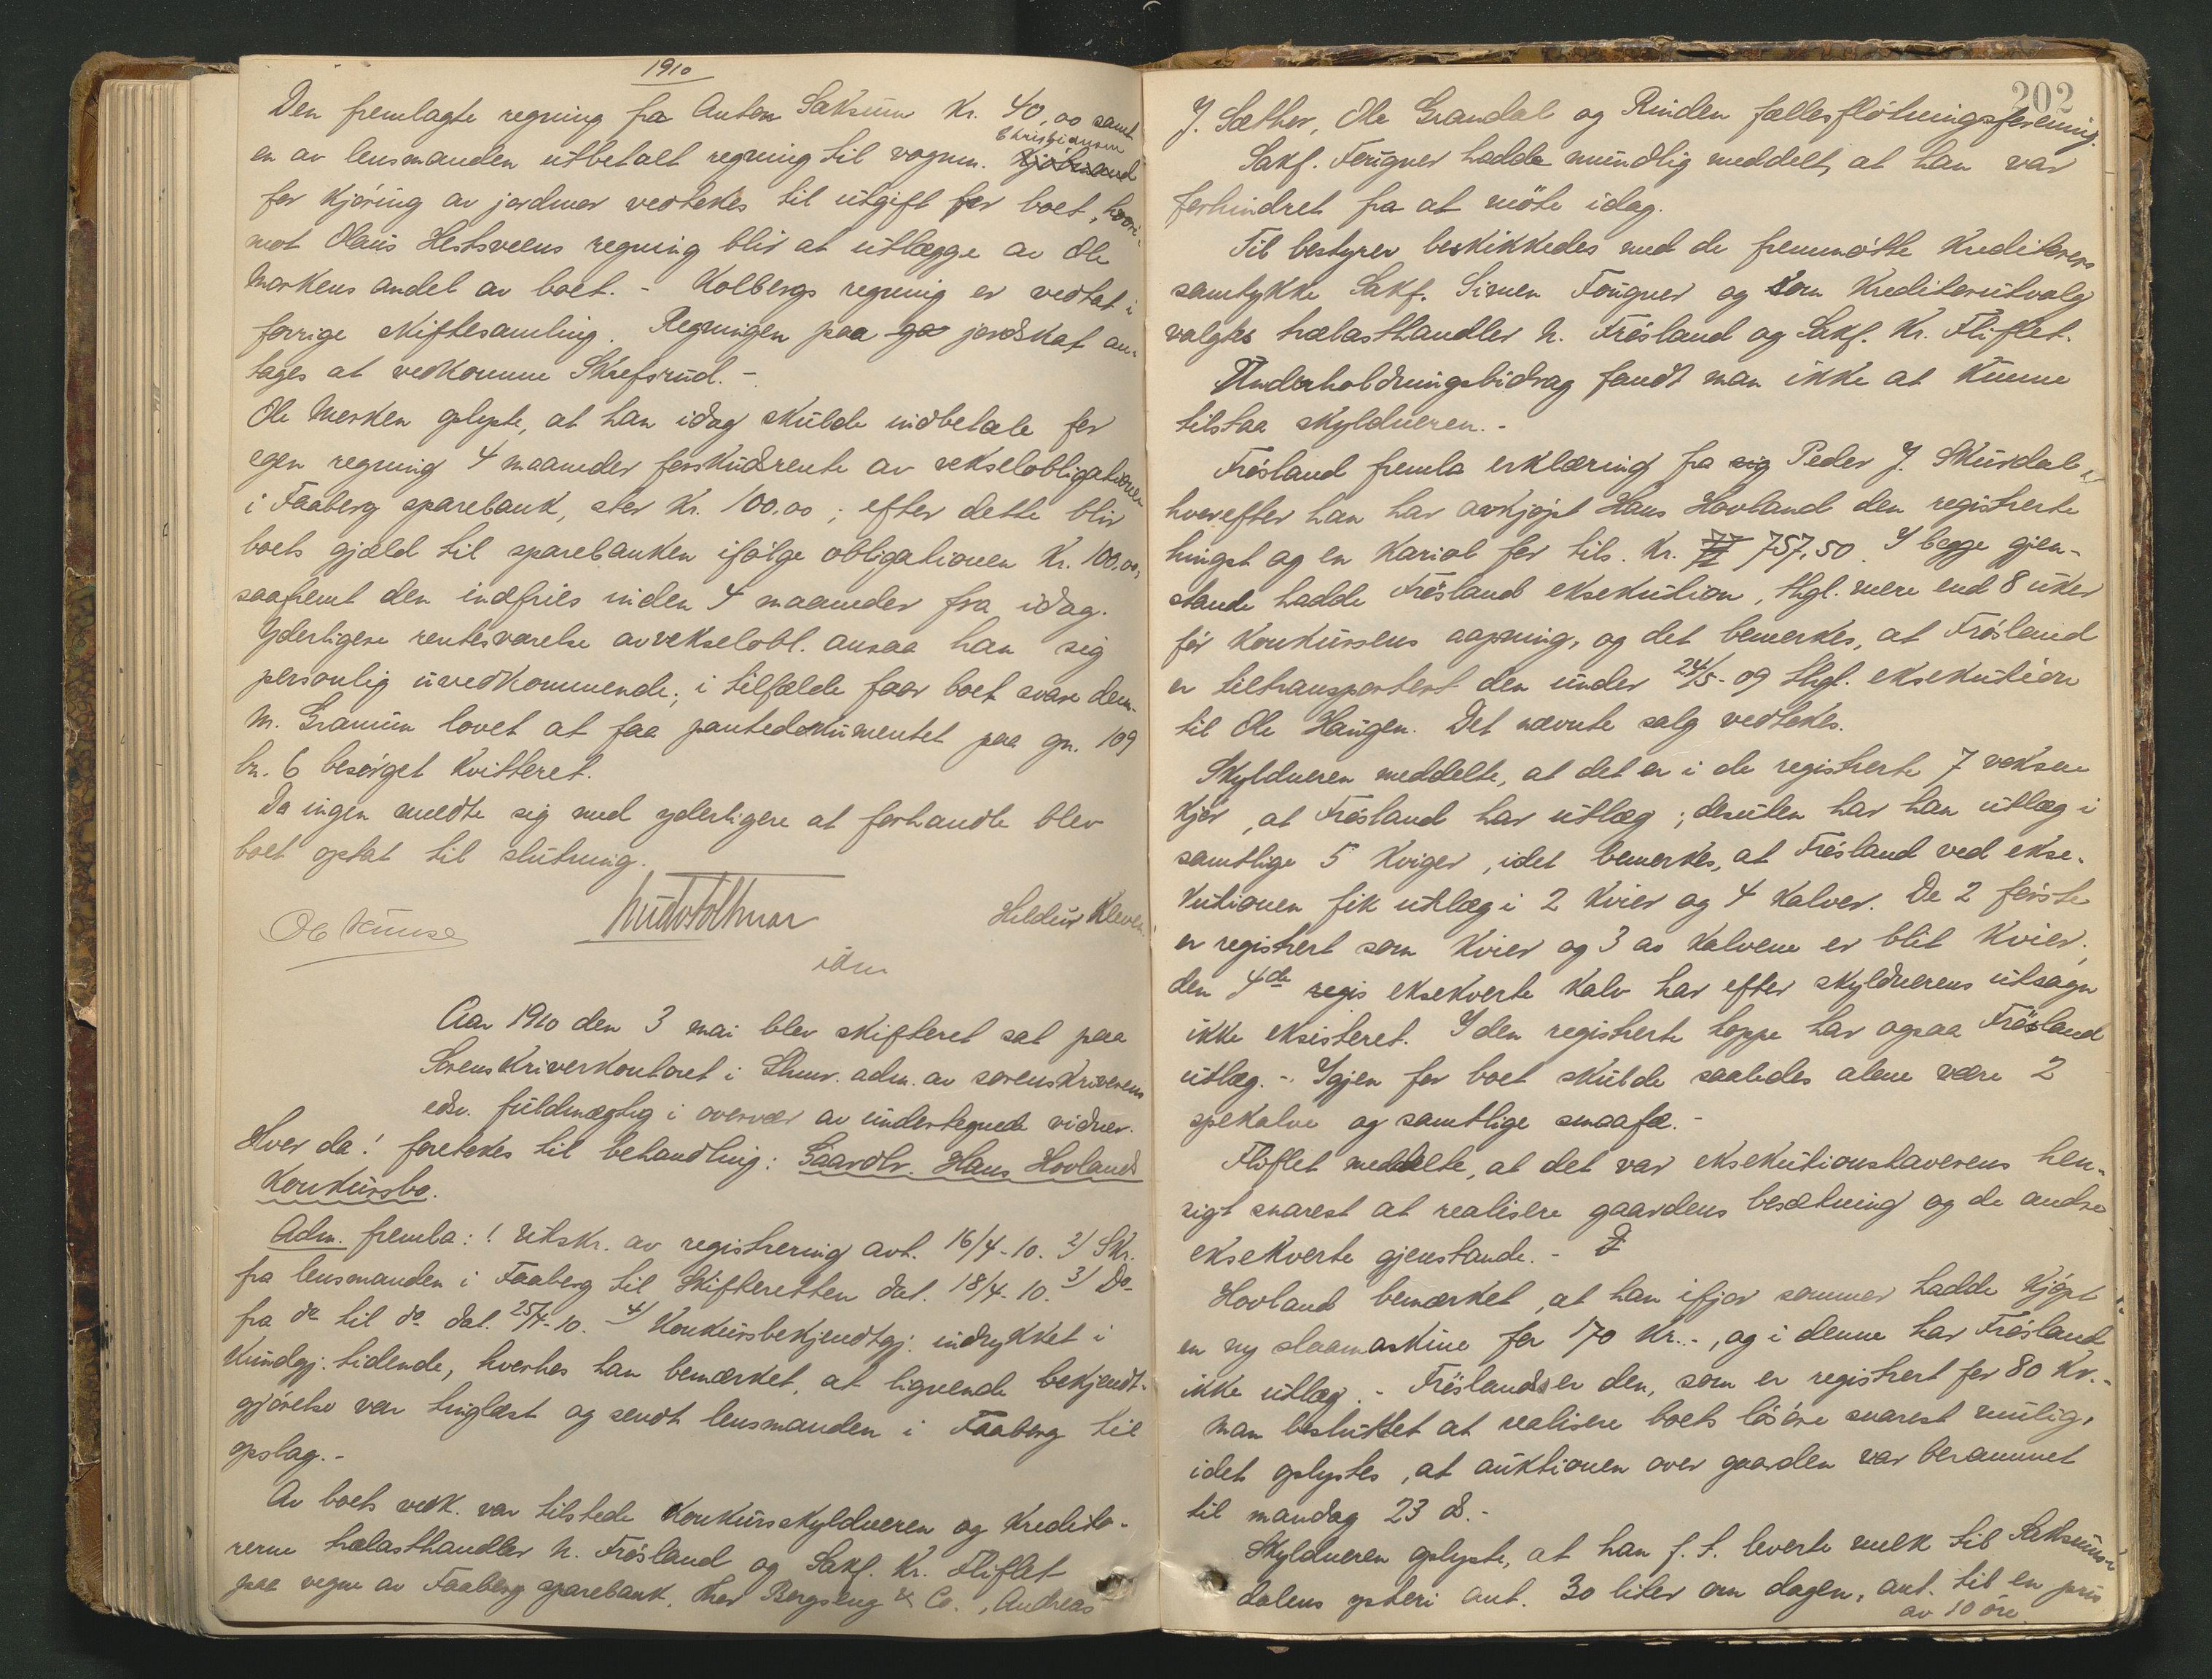 1910
Den fremlagte regning fra Anton Saksum Kr. 40,00 samt
en av lensmanden utbetalt regning til vognm. Christiansen
for kjøring av jordmor vedtokes til utgift for boet, hvori-
mot Olaus Hestsveens regning blir at utlægge av Ole
Morkens andel av boet. - Kolbergs regning er vedtat i
forrige skiftesamling. Regningen paa ga jordskat an-
tages at vedkomme Skrefsrud. -
Ole Morken oplyste, at han idag skulde indbetale for
egen regning 4 maaneder forskudrente av vekselobligationen
i Faaberg sparebank, stor Kr. 100.00; efter dette blir
boets gjæld til sparebanken ifølge obligationen Kr. 100.00,
saafremt den indfries inden 4 maaneder fra idag.
Yderligere rentesvarelse av vekselobl. ansaa han sig
personlig uvedkommende; i tilfælde faar boet svare dem.
M. Granum lovet at faa pantedokumentet paa gn. 109
bn. 6 besørget kvitteret.
Da ingen meldte sig med yderligere at forhandle blev
boet optat til slutning.
Ole Kunse Hildur Kleven
idm
Aar 1910 den 3 mai blev skifteret sat paa
Sorenskriverkontoret i Lhmr. adm. av sorenskriverens
edsv. fuldmægtig i overvær av undertegnede vidner.
Hvor da! foretokes til behandling: Gaardbr. Hans Hovlands
Konkursbo.
Adm. fremla: 1 Utskr. av registrering avt. 16/4-10. 2) Skr.
fra lensmanden i Faaberg til Skifteretten dat. 18/4-10. 3) Do
fra do til do dat. 25/4-10. 4) Konkursbekjendtgj. indrykket i
Kundgj. tidende, hvorhos han bemærket, at lignende bekjendt-
gjørelse var tinglæst og sendt lensmanden i Faaberg til
opslag. -
Av boets vedk. var tilstede konkursskyldneren og kredito-
rerne trælasthandler N. Frøsland og Sakf. Kr. Fliflet
paa vegne av Faaberg sparebank, Bergseng & Co., Andreas
202
J. Sæther, Ole Grandal og Rinden fællesfløtningsforening.
Sakf. Fougner hadde mundtlig meddelt, at han var
forhindret fra at møte idag.
Til bestyrer beskikkedes med de fremmøtte kreditorers
samtykke Sakf. Simen Fougner og som kreditorutvalg
valgtes trælasthandler N. Frøsland og Sakf. Kr. Fliflet.
Underholdningsbidrag fandt man ikke at kunne
tilstaa skyldneren. -
Frøsland fremla erklæring fra sig Peder J. Skurdal,
hvorefter han har avkjøpt Hans Hovland den registrerte
hingst og en karjol for tils. Kr. 77 757,50. I begge gjen-
stande hadde Frøsland eksekution, thgl. mere end 8 uker
før konkursens aapning, og det bemerkes, at Frøsland
er tiltransportert den under 24/5-09 thgl. eksekution
til Ole Haugen. Det nævnte salg vedtokes.
Skyldneren meddelte, at det er i de registrerte 7 voksne
kjør, at Frøsland har utlæg; desuten har han utlæg i
samtlige 5 kviger, idet bemerkes, at Frøsland ved ekse-
kutionen fik utlæg i 2 kvier og 4 kalver. De 2 første
er registrert som kvier og 3 av kalvene er blit kvier;
den 4de regis eksekverte kalv har efter skyldnerens utsagn
ikke eksisteret. I den registrerte hoppe har ogsaa Frøsland
utlæg. - Igjen for boet skulde saaledes alene være 2
spekalve og samtlige smaafæ. -
Fliflet meddelte, at det var eksekutionshaverens hen-
sigt snarest at realisere gaardens besætning og de andre
eksekverte gjenstande. -
Hovland bemærket, at han ifjor sommer hadde kjøpt
en ny slaamaskine for 170 Kr. -, og i denne har Frøsland
ikke utlæg. - Frøslands er den, som er registrert for 80 Kr. -
Man besluttet at realisere boets løsøre snarest mulig,
idet oplystes, at auktionen over gaarden var berammet
til mandag 23 ds. -
Skyldneren oplyste, at han f. t. leverte melk til Saksum-
dalens ysteri ant. 30 liter om dagen, ant. til en pris
av 10 øre.